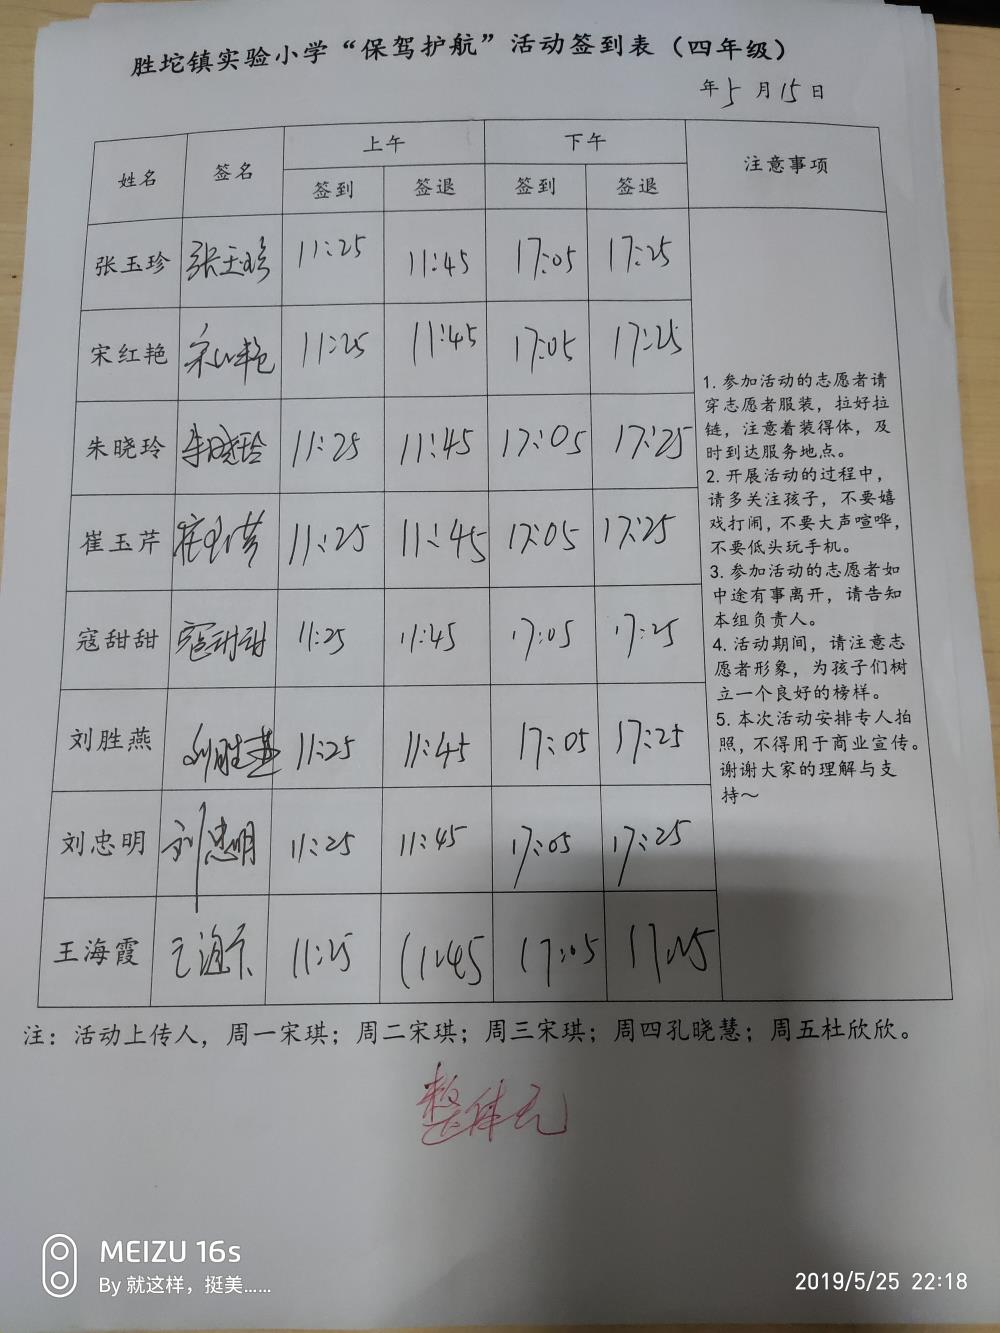 胜坨镇实验小学“保驾护航”活动签到表（四年级）
年5月15日
姓名 签名 上午 下午 注意事项
签到 签退 签到 签退
张玉珍 张玉珍 11:25 11:45 17:05 17:25
宋红艳 宋红艳 11:25 11:45 17:05 17:25
朱晓玲 朱晓玲 11:25 11:45 17:05 17:25
崔玉芹 崔玉芹 11:25 11:45 17:05 17:25
寇甜甜 寇甜甜 11:25 11:45 17:05 17:25
刘胜燕 刘胜燕 11:25 11:45 17:05 17:25
刘忠明 刘忠明 11:25 11:45 17:05 17:25
王海霞 王海霞 11:25 11:45 17:05 17:25
1. 参加活动的志愿者请
穿志愿者服装，拉好拉
链，注意着装得体，及
时到达服务地点。
2. 开展活动的过程中，
请多关注孩子，不要嬉
戏打闹,不要大声喧哗，
不要低头玩手机。
3. 参加活动的志愿者如
中途有事离开，请告知
本组负责人。
4. 活动期间，请注意志
愿者形象，为孩子们树
立一个良好的榜样。
5. 本次活动安排专人拍
照,不得用于商业宣传。
谢谢大家的理解与支
持～
注：活动上传人，周一宋琪；周二宋琪；周三宋琪；周四孔晓慧；周五杜欣欣。
MEIZU 16s
By 就这样，挺美......
2019/5/25 22:18